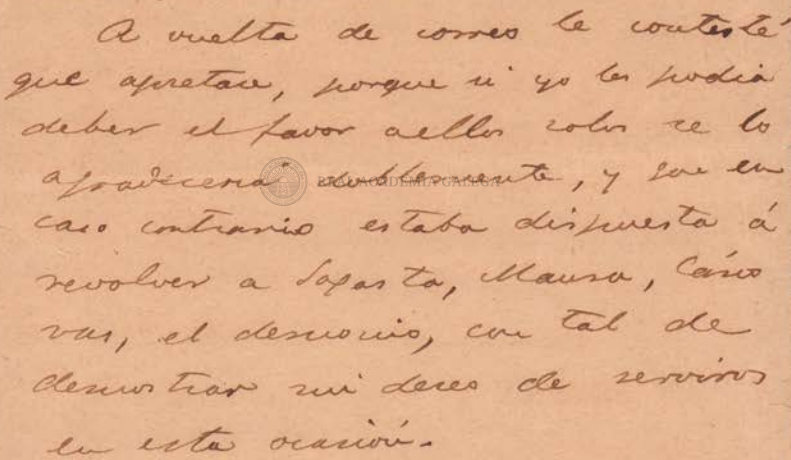 A vuelta de correo le contesté
que apretase, porque si yo les podia
deber el favor a ellos solos se lo
agradeceria doblemente, y que en
caso contrario estaba dispuesta á
revolver a Sagasta, Maura, Cáno
vas, el demonio, con tal de
demostrar mi deseo de serviros
en esta ocasión.
REAL ACADEMIA GALEGA